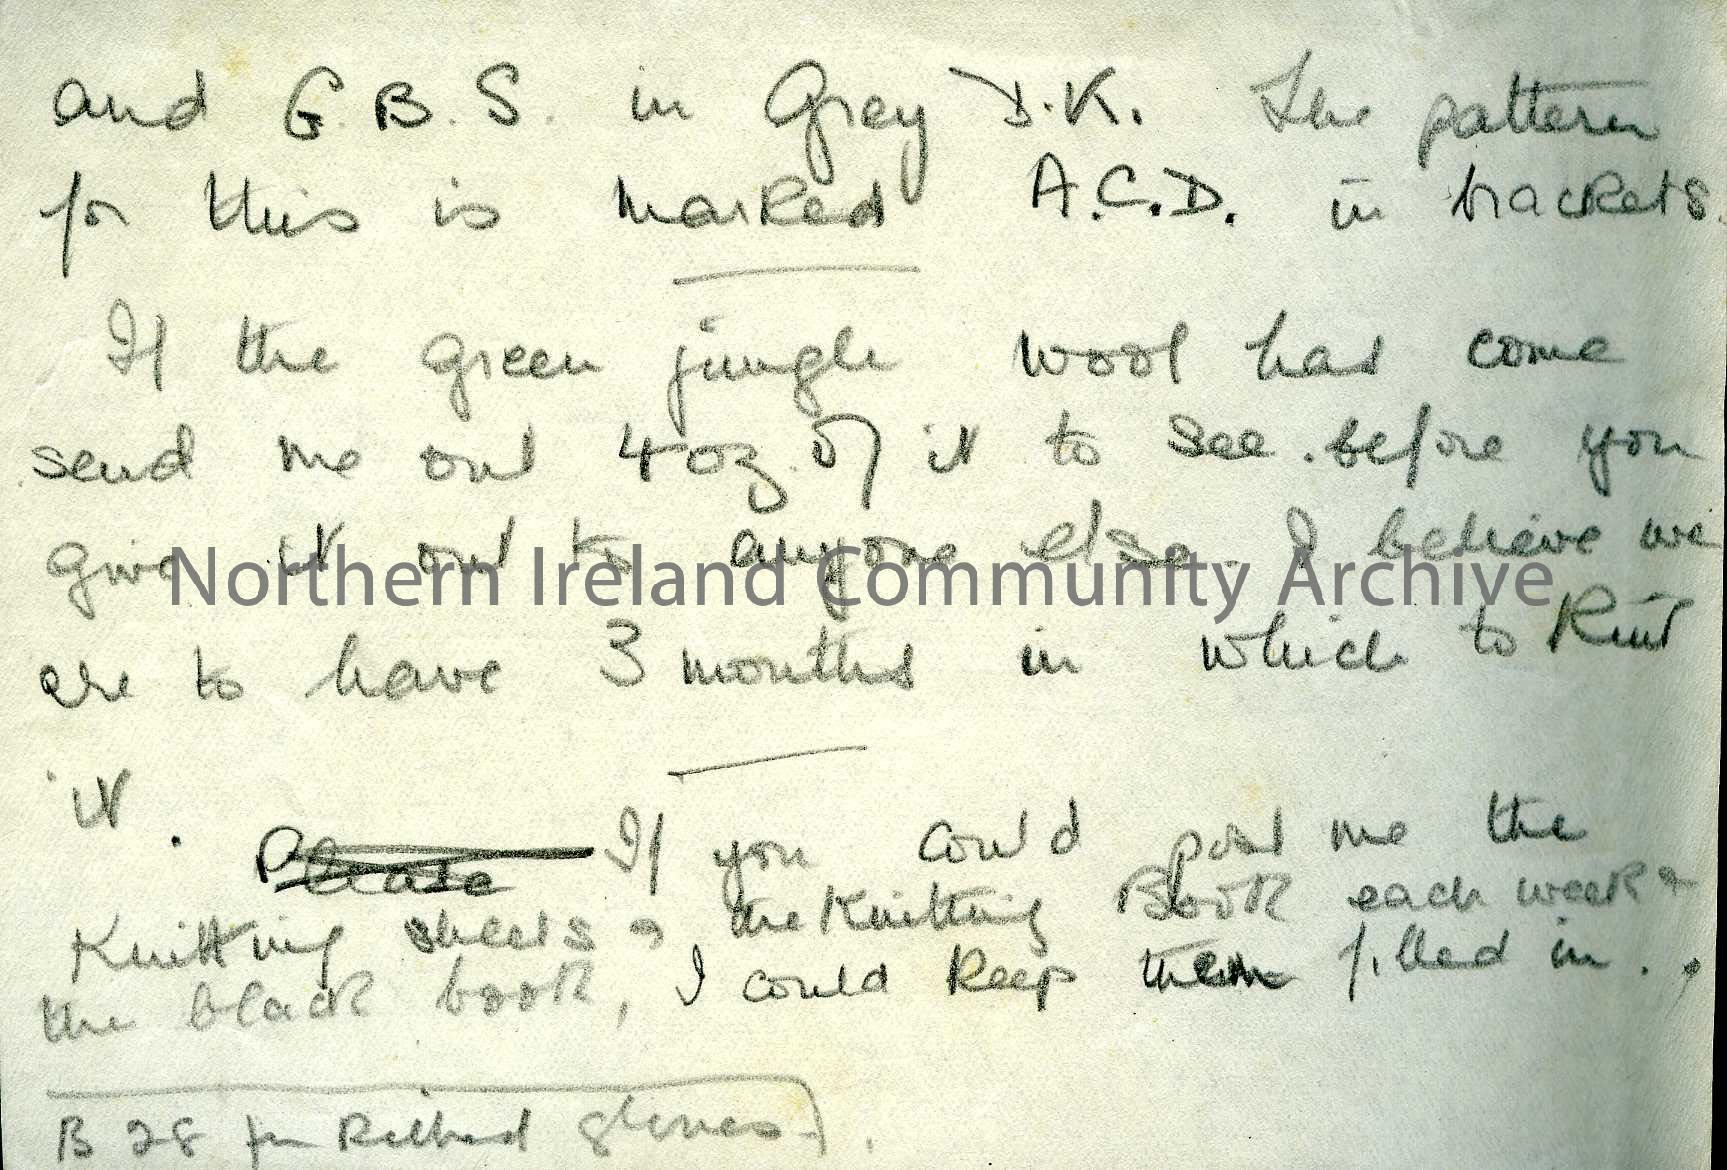 and G.B.S. in Grey D.K. The pattern
for this is marked A.C.D. in brackets.
If the green jungle wool has come
send me out 4 oz. of it to see. before you
give it out to anyone else. I believe we
Northern Ireland Community Archive
are to have 3 months in which to Knit
it.
Please If you could post me the
Knitting sheets & the Knitting Book each week &
the black book, I could keep them filled in.
B 28 for Ribbed gloves.